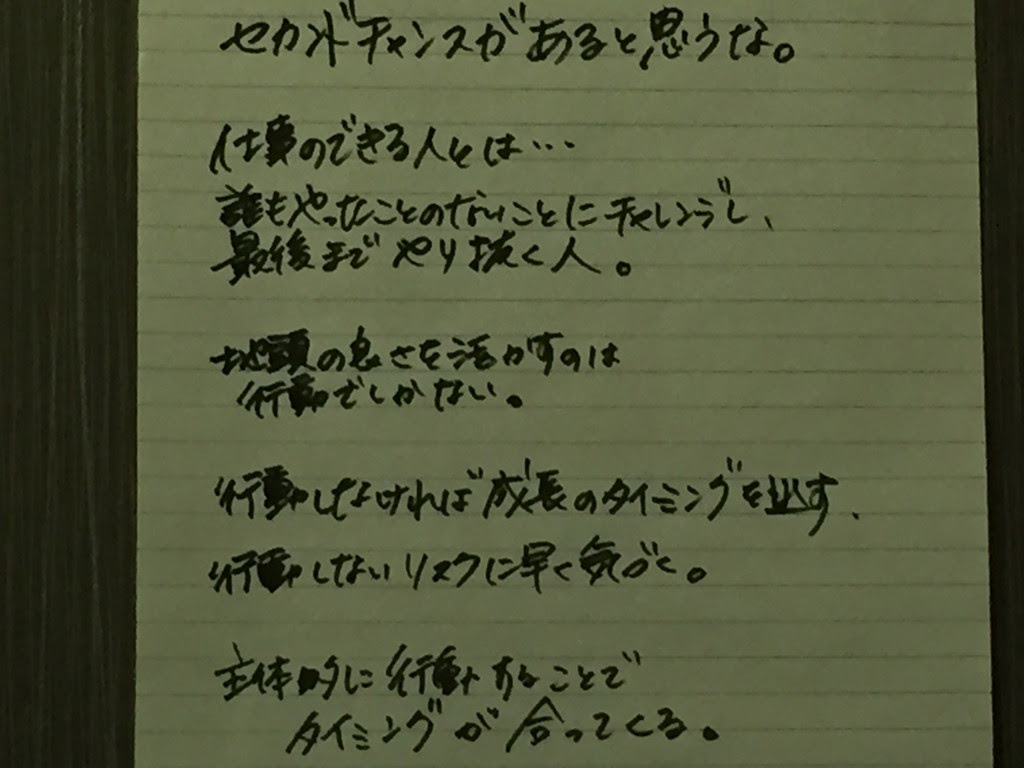 セカンドチャンスがあると思うな。
仕事のできる人とは…
誰もやったことのないことにチャレンジし、
最後までやり抜く人。
地頭の良さを活かすのは
行動でしかない。
行動しなければ成長のタイミングを逃す、
行動しないリスクに早く気づく。
主体的に行動することで
タイミングが合ってくる。